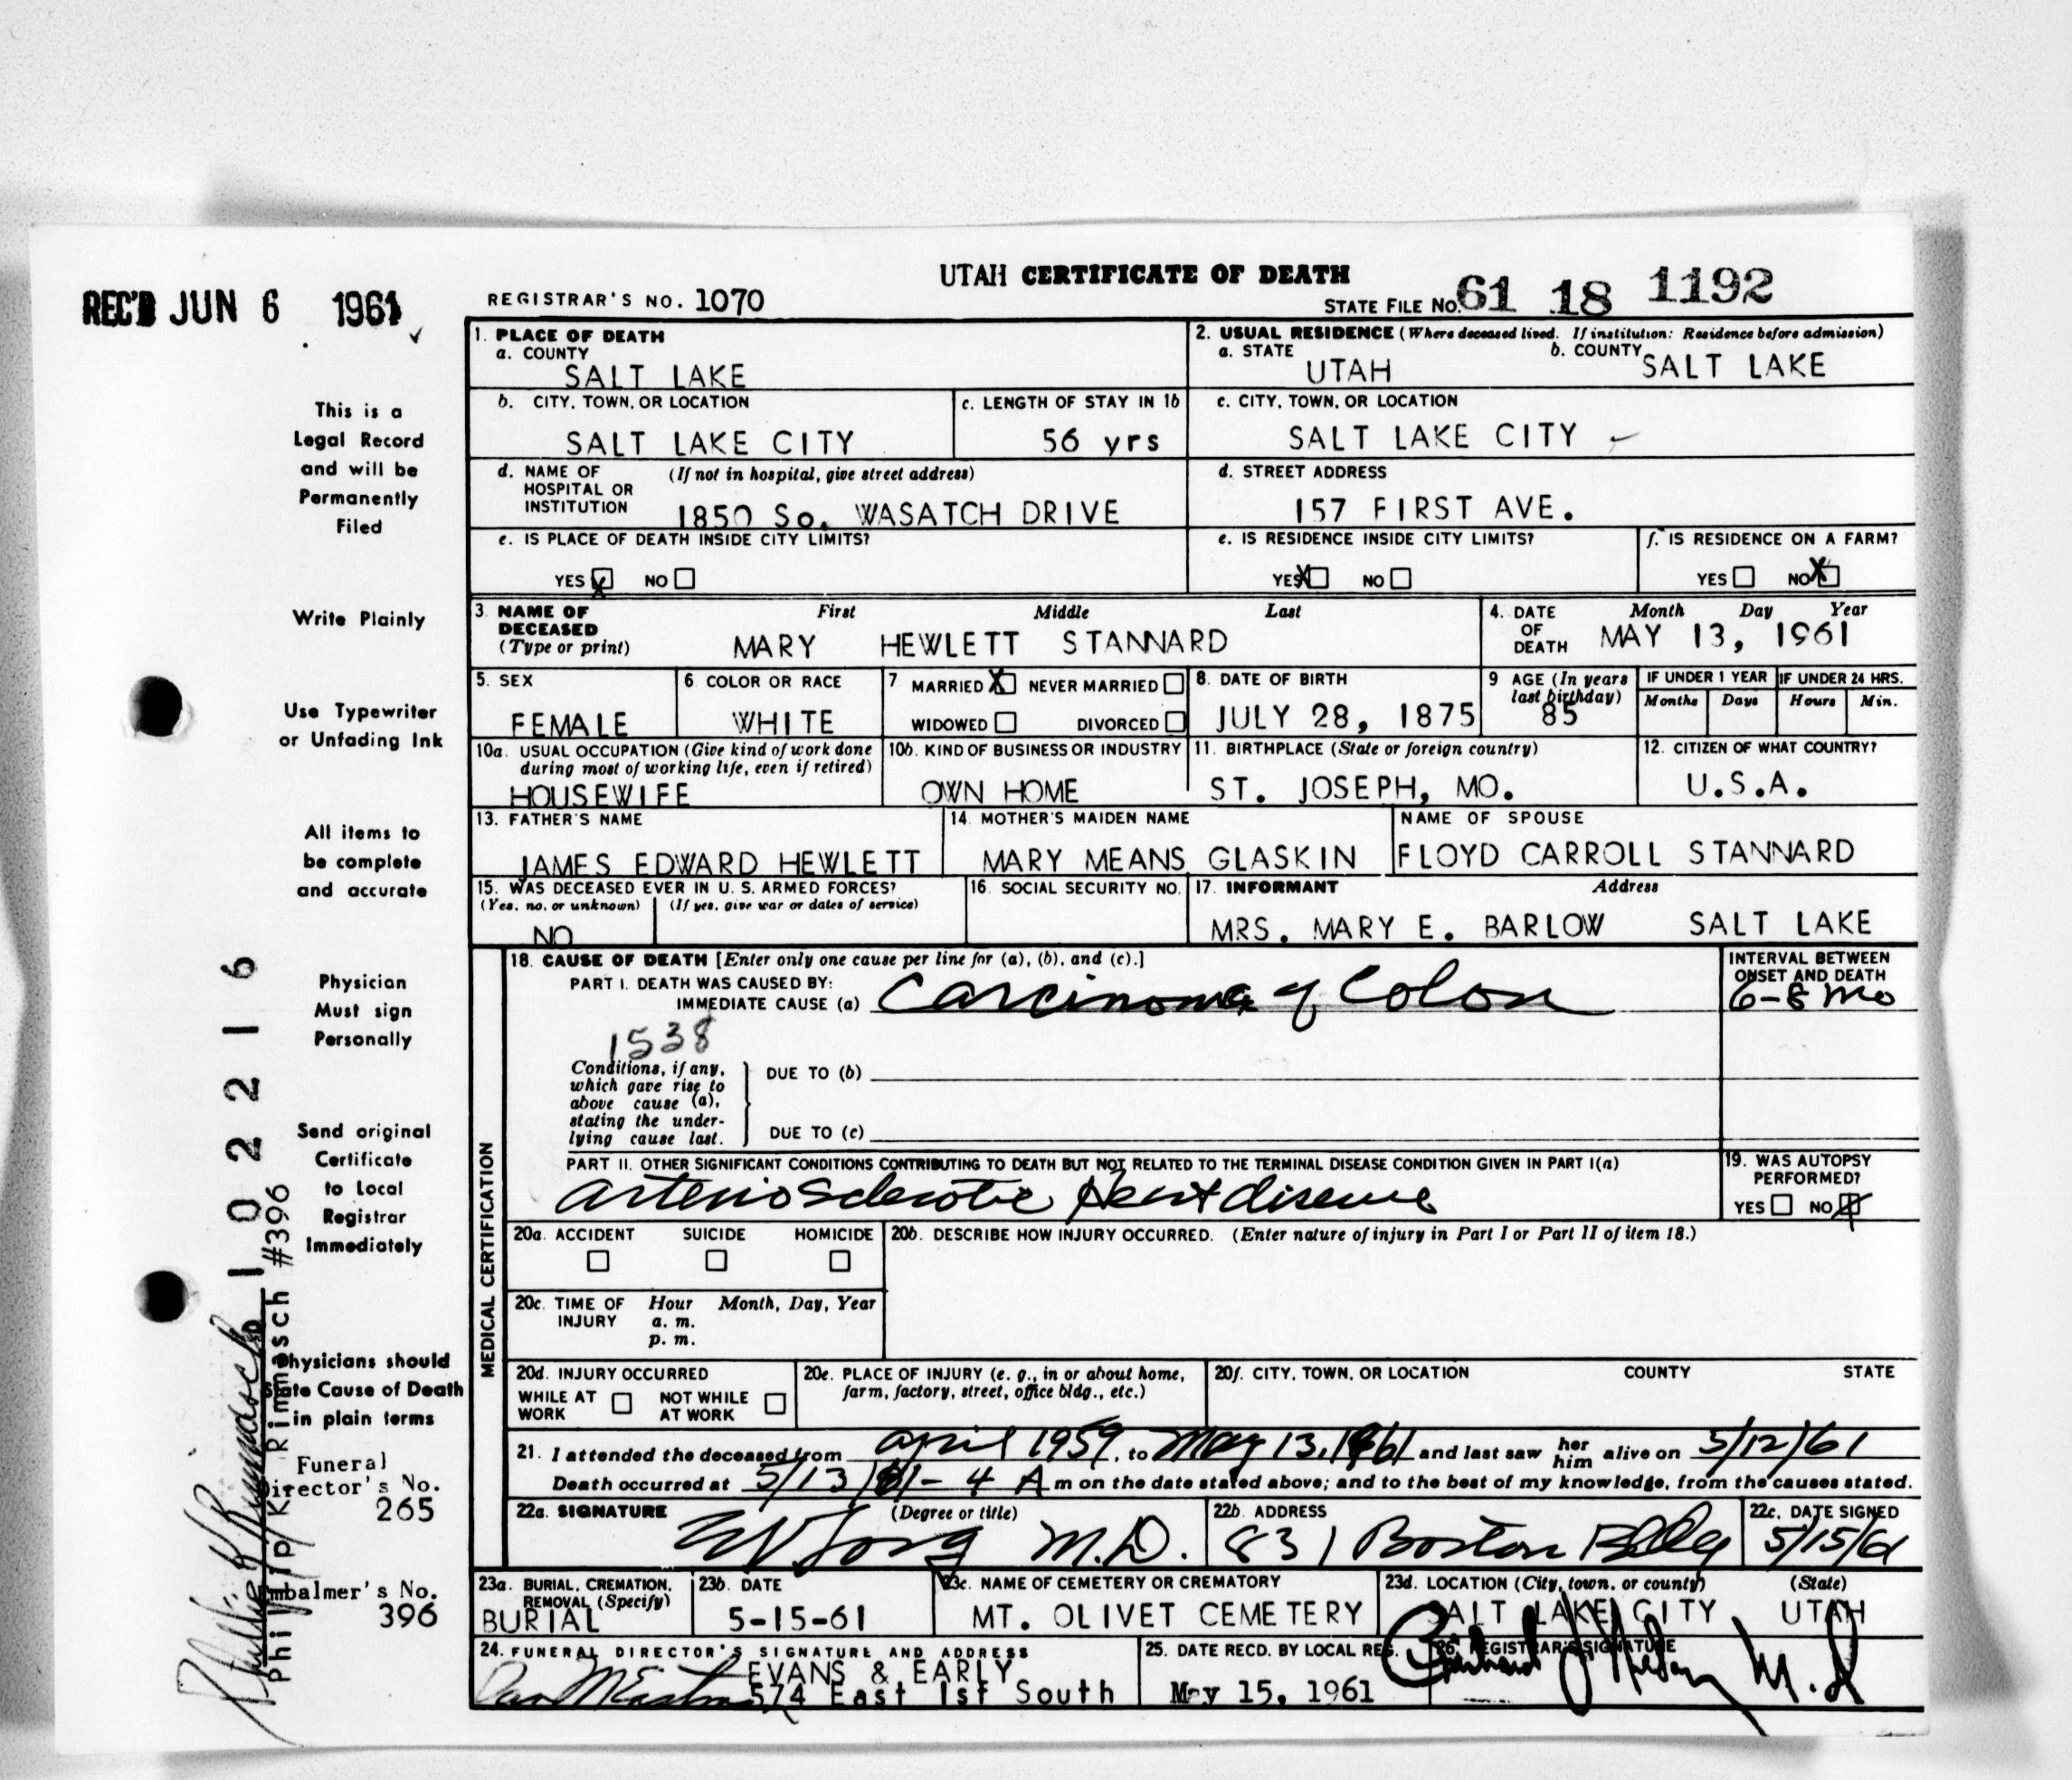 UTAH CERTIFICATE OF DEATH
REC'D JUN 6 1961
REGISTRAR'S NO. 1070
STATE FILE NO. 61 18 1192
1. PLACE OF DEATH
a. COUNTY
SALT LAKE
2. USUAL RESIDENCE (Where deceased lived. If institution: Residence before admission)
a. STATE
UTAH
b. COUNTY
SALT LAKE
b. CITY, TOWN, OR LOCATION
SALT LAKE CITY
c. LENGTH OF STAY IN 1b
56 yrs
c. CITY, TOWN, OR LOCATION
SALT LAKE CITY
d. NAME OF HOSPITAL OR INSTITUTION (If not in hospital, give street address)
1850 So. WASATCH DRIVE
d. STREET ADDRESS
157 FIRST AVE.
e. IS PLACE OF DEATH INSIDE CITY LIMITS?
YES X NO
e. IS RESIDENCE INSIDE CITY LIMITS?
YES X NO
f. IS RESIDENCE ON A FARM?
YES NO X
3. NAME OF DECEASED (Type or print)
First Middle Last
MARY HEWLETT STANNARD
4. DATE OF DEATH
Month Day Year
MAY 13, 1961
5. SEX
FEMALE
6. COLOR OR RACE
WHITE
7 MARRIED X NEVER MARRIED
WIDOWED DIVORCED
8. DATE OF BIRTH
JULY 28, 1875
9 AGE (In years last birthday)
85
IF UNDER 1 YEAR
Months Days
IF UNDER 24 HRS.
Hours Min.
10a. USUAL OCCUPATION (Give kind of work done during most of working life, even if retired)
HOUSEWIFE
10b. KIND OF BUSINESS OR INDUSTRY
OWN HOME
11. BIRTHPLACE (State or foreign country)
ST. JOSEPH, MO.
12. CITIZEN OF WHAT COUNTRY?
U.S.A.
13. FATHER'S NAME
JAMES EDWARD HEWLETT
14. MOTHER'S MAIDEN NAME
MARY MEANS GLASKIN
NAME OF SPOUSE
FLOYD CARROLL STANNARD
15. WAS DECEASED EVER IN U. S. ARMED FORCES?
(Yes, no, or unknown) (If yes, give war or dates of service)
NO
16. SOCIAL SECURITY NO.
17. INFORMANT Address
MRS. MARY E. BARLOW SALT LAKE
MEDICAL CERTIFICATION
18. CAUSE OF DEATH [Enter only one cause per line for (a), (b), and (c).]
PART I. DEATH WAS CAUSED BY:
IMMEDIATE CAUSE (a) Carcinoma of Colon
INTERVAL BETWEEN ONSET AND DEATH
6-8 mo
1538
Conditions, if any, which gave rise to above cause (a), stating the underlying cause last.
DUE TO (b)
DUE TO (c)
PART II. OTHER SIGNIFICANT CONDITIONS CONTRIBUTING TO DEATH BUT NOT RELATED TO THE TERMINAL DISEASE CONDITION GIVEN IN PART I(a)
arteriosclerotic Heart disease
19. WAS AUTOPSY PERFORMED?
YES NO X
20a. ACCIDENT SUICIDE HOMICIDE
20b. DESCRIBE HOW INJURY OCCURRED. (Enter nature of injury in Part I or Part II of item 18.)
20c. TIME OF INJURY Hour Month, Day, Year
a. m.
p. m.
20d. INJURY OCCURRED
WHILE AT WORK NOT WHILE AT WORK
20e. PLACE OF INJURY (e. g., in or about home, farm, factory, street, office bldg., etc.)
20f. CITY, TOWN, OR LOCATION COUNTY STATE
21. I attended the deceased from april 1959, to May 13, 1961 and last saw her him alive on 5/12/61
Death occurred at 5/13/61 - 4 A m on the date stated above; and to the best of my knowledge, from the causes stated.
22a. SIGNATURE (Degree or title)
M.D.
22b. ADDRESS
831 Boston Bldg
22c. DATE SIGNED
5/15/61
23a. BURIAL, CREMATION, REMOVAL (Specify)
BURIAL
23b. DATE
5-15-61
23c. NAME OF CEMETERY OR CREMATORY
MT. OLIVET CEMETERY
23d. LOCATION (City, town, or county) (State)
SALT LAKE CITY UTAH
24. FUNERAL DIRECTOR'S SIGNATURE AND ADDRESS
EVANS & EARLY
574 East 1st South
25. DATE RECD. BY LOCAL REG.
May 15, 1961
26. REGISTRAR'S SIGNATURE
M.D
This is a
Legal Record
and will be
Permanently
Filed
Write Plainly
Use Typewriter
or Unfading Ink
All items to
be complete
and accurate
Physician
Must sign
Personally
Send original
Certificate
to Local
Registrar
Immediately
Physicians should
State Cause of Death
in plain terms
Funeral
Director's No.
265
Embalmer's No.
396
1 0 2 2 1 6
Philip K Rimmasch #396